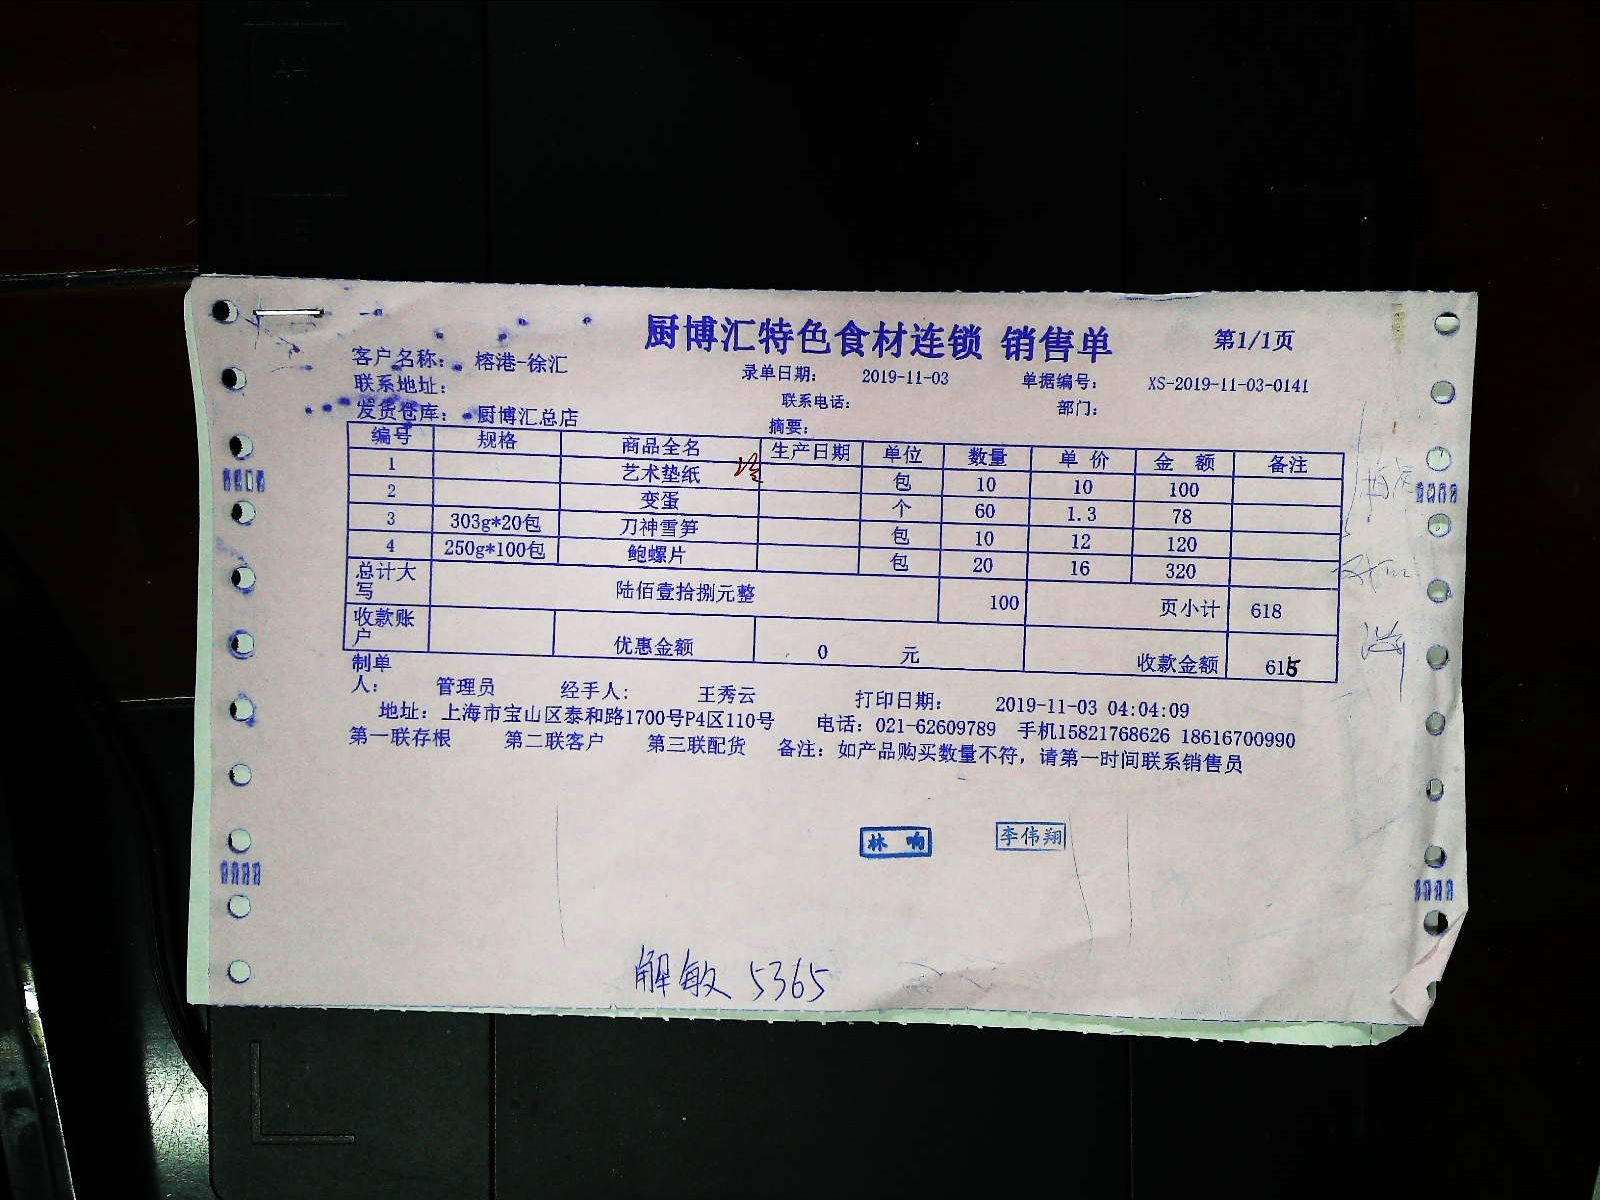 厨博汇特色食材连锁 销售单 第1/1页
客户名称： 榕港-徐汇 录单日期： 2019-11-03 单据编号： XS-2019-11-03-0141
联系地址： 联系电话： 部门：
发货仓库： 厨博汇总店 摘要：
编号 规格 商品全名 生产日期 单位 数量 单 价 金 额 备注
1 艺术垫纸 包 10 10 100
2 变蛋 个 60 1.3 78
3 303g*20包 刀神雪笋 包 10 12 120
4 250g*100包 鲍螺片 包 20 16 320
总计大写 陆佰壹拾捌元整 100 页小计 618
收款账户 优惠金额 0 元 收款金额 615
制单人： 管理员 经手人： 王秀云 打印日期： 2019-11-03 04:04:09
地址：上海市宝山区泰和路1700号P4区110号 电话：021-62609789 手机15821768626 18616700990
第一联存根 第二联客户 第三联配货 备注：如产品购买数量不符，请第一时间联系销售员
林响 李伟翔
解敏 5365